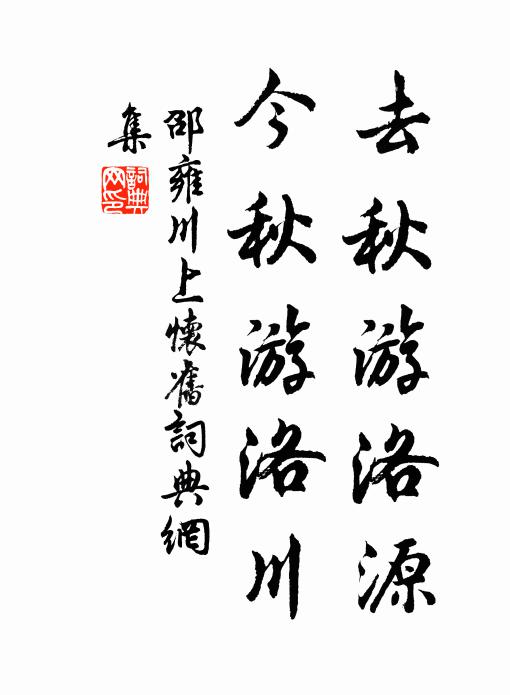 去秋游洛源
今秋游洛川
邵雍川上懷舊詞典網
集
詞典網印